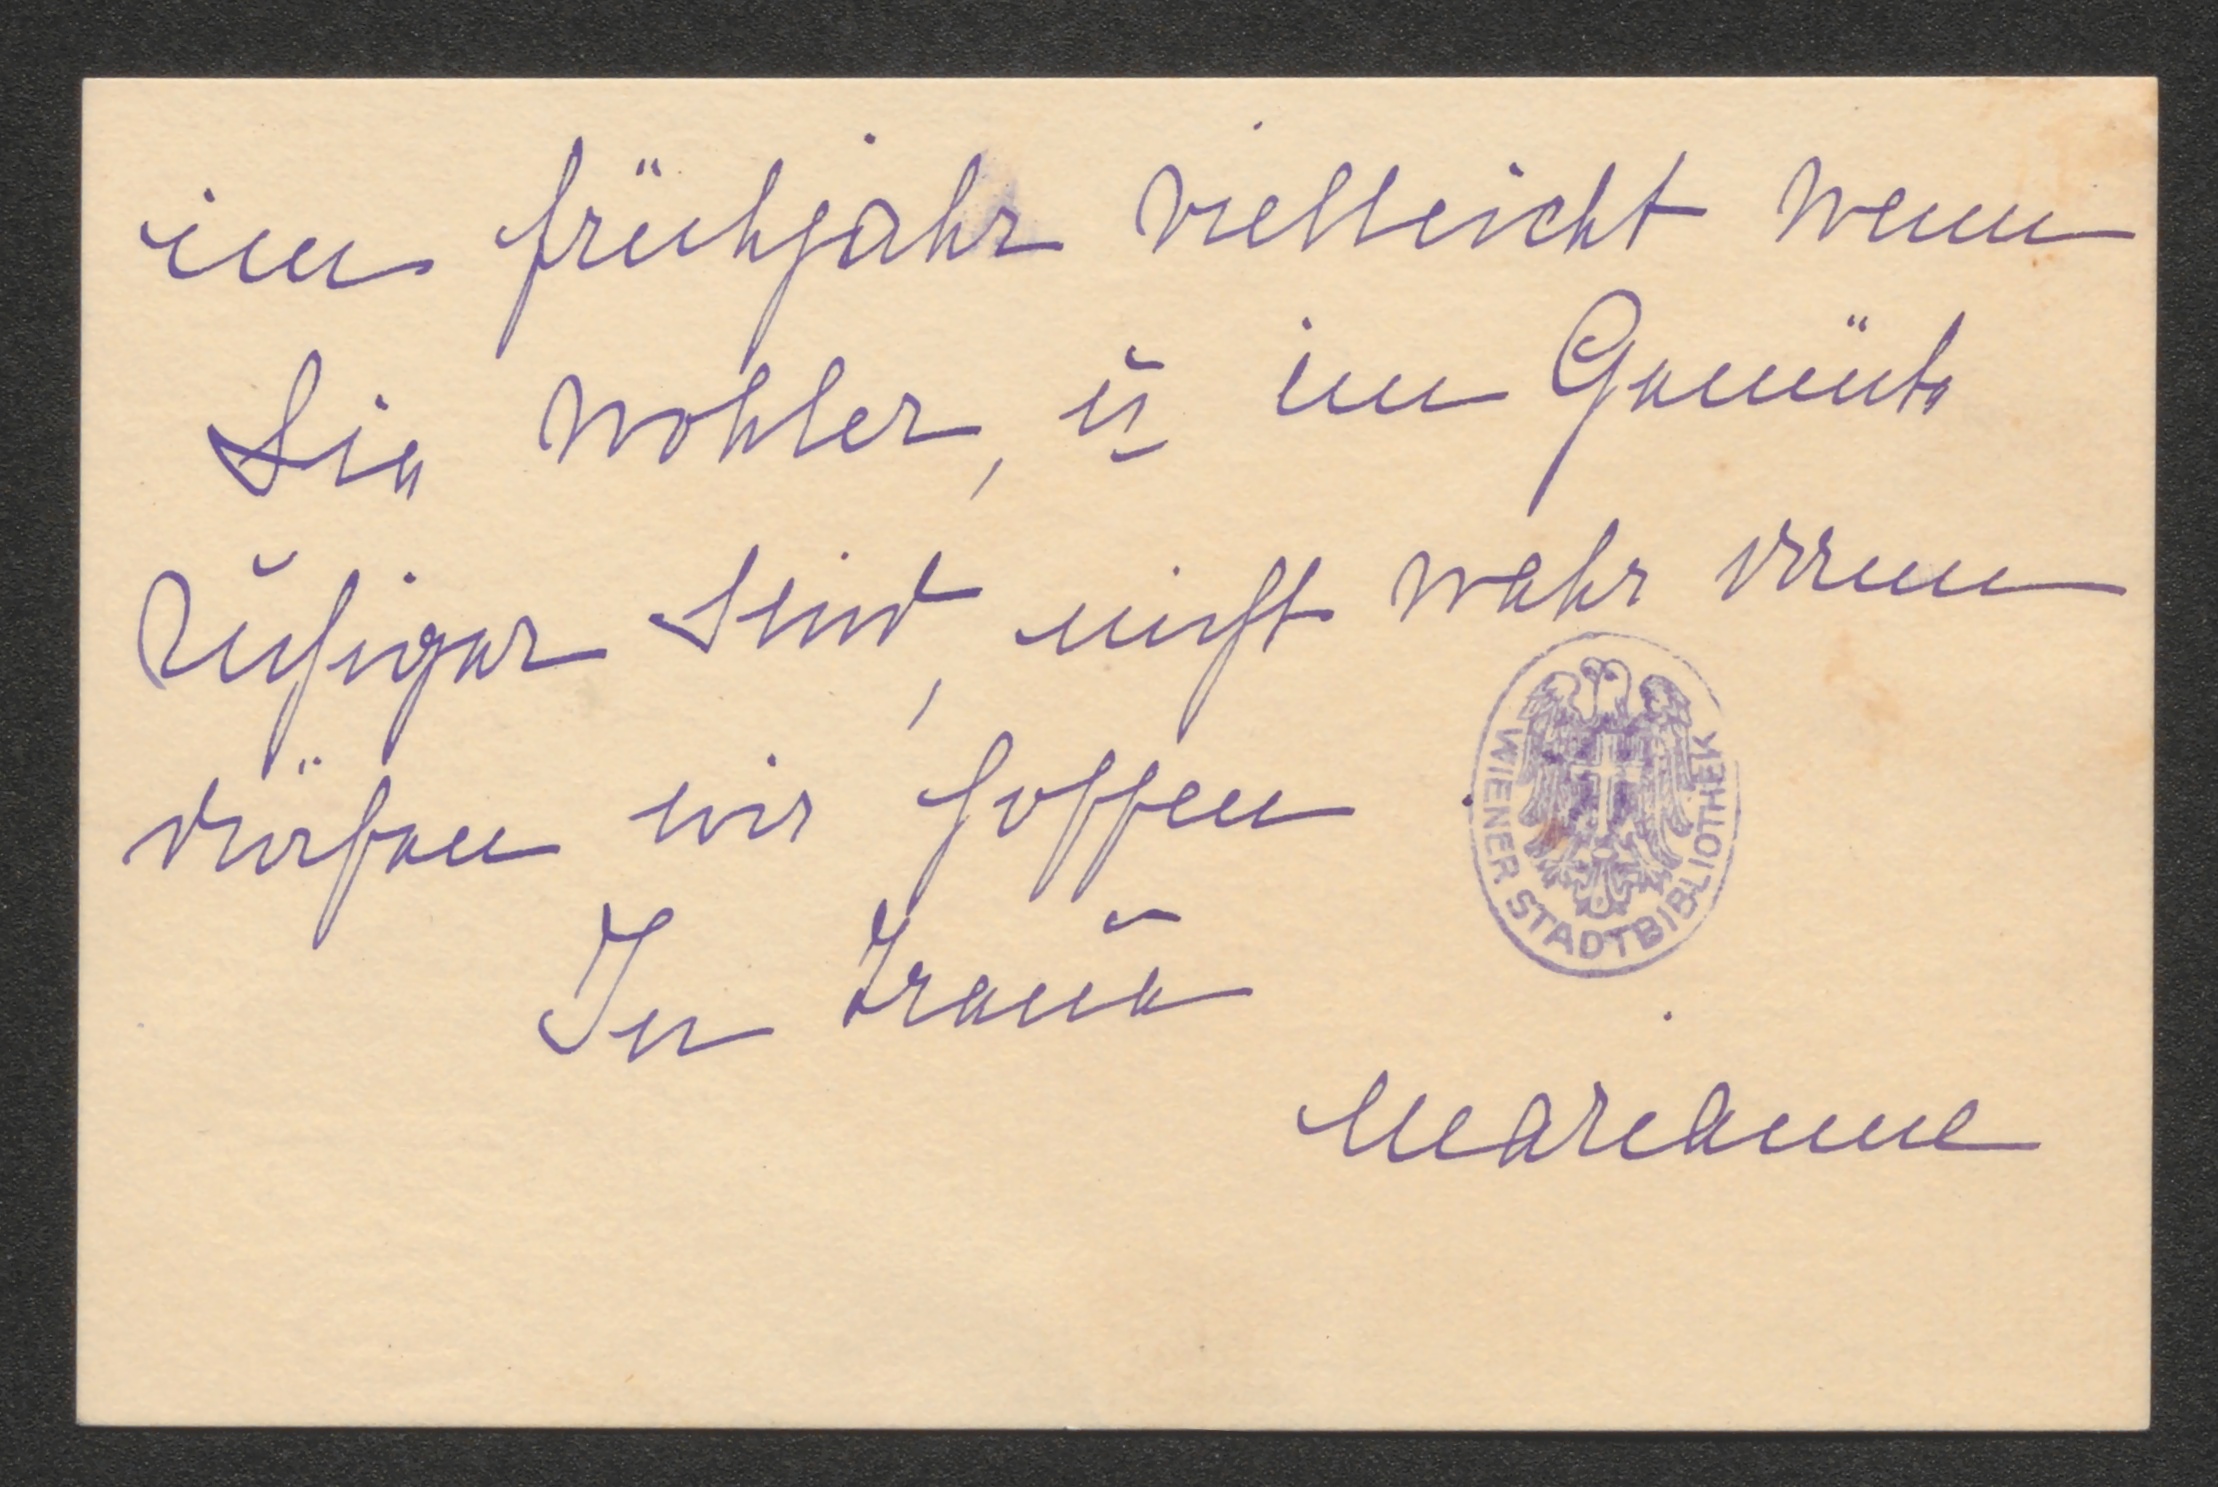 im frühjahr vielleicht wenn
Sie wohler, u im Gemüte
ruhiger sind, nicht wahr dann
dürfen wir hoffen
In Treue
Marianne
WIENER STADTBIBLIOTHEK